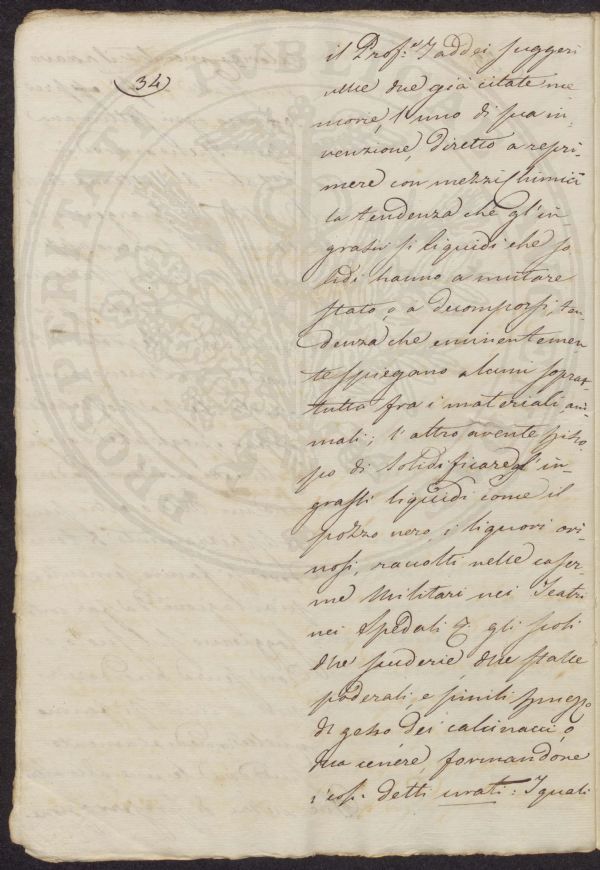 34
il Prof.r Taddei suggerì
nelle due già citate me
morie, l'uno di sua in,
venzione, diretto a repri-
mere con mezzi chimici
la tendenza che gl'in,
grassi sì liquidi che so
lidi hanno a mutare
stato, o a decomporsi, ten
denza che eminentemen,
te spiegano alcuni sopra,
tutto fra i materiali, ani
mali; l'altro avente pisco
po di solidificare gl'in-
grassi liquidi come il
pozzo nero, i liquori ori
nosi, raccolti nelle caser
me Militari nei Teatri
nei Spedali gli scoli
delle scuderie, delle stalle
poderali, e simili p mezzo
di gesso dei calcinacci, o
della cenere, formandone
i così detti urati: I quali
PROSPERITATI PUBLICAE